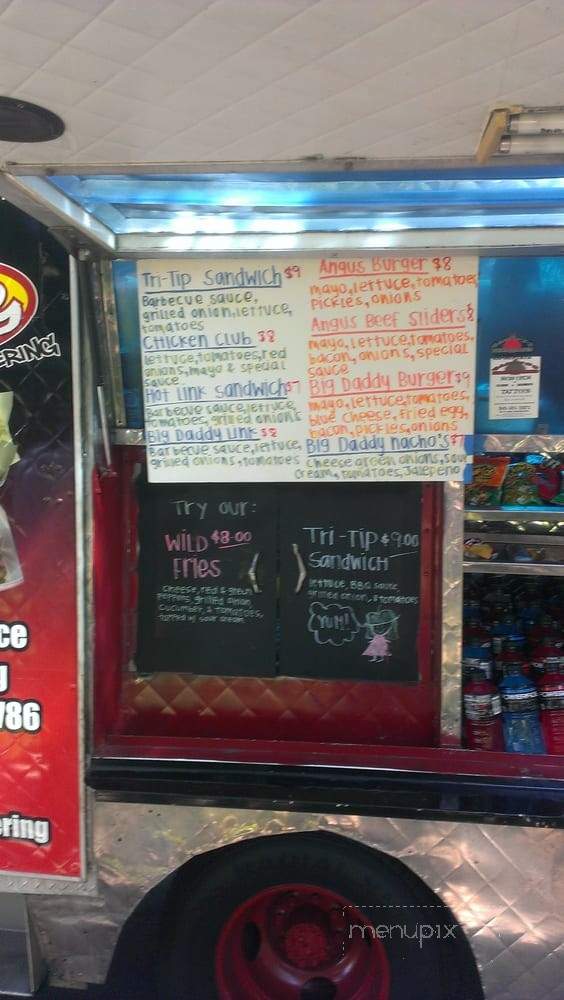 Tri-Tip Sandwich $9
Barbecue sauce,
grilled onion, lettuce,
tomatoes
Chicken Club $8
lettuce, tomatoes, red
onions, mayo & special
sauce
Hot Link Sandwich $7
Barbecue sauce, lettuce,
tomatoes, grilled onions
Big Daddy Link $8
Barbecue sauce, lettuce,
grilled onions, tomatoes
Angus Burger $8
mayo, lettuce, tomatoes,
pickles, onions
Angus Beef Sliders
mayo, lettuce, tomatoes,
bacon, onions, special
sauce
Big Daddy Burger $9
mayo, lettuce, tomatoes,
blue cheese, fried egg,
bacon, pickles, onions
Big Daddy nacho's $7
cheese green onions, sour
cream, tomatoes, Jalepeno
Try our:
Wild $8.00
Fries
cheese, red & green
peppers, grilled onion,
cucumber, & tomatoes,
topped w/ sour cream
Tri-Tip $9.00
Sandwich
lettuce, BBQ sauce,
grilled onion, & tomatoes
Yum!
ERING
ce
g
786
ering
TATTOOS
menupix